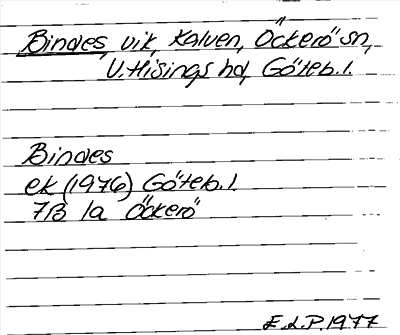 Bindes, vik, Kalven, Öckerö sn,
V. Hisings hd, Göteb. l.
Bindes
ek (1976) Göteb. l.
7B 1a Öckerö
E.L.P. 1977